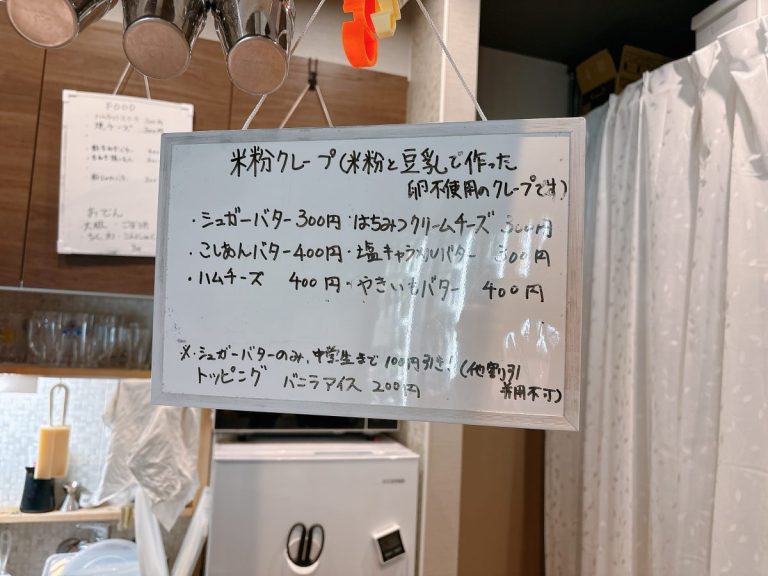 米粉クレープ(米粉と豆乳で作った
卵不使用のクレープです)
・シュガーバター300円・はちみつクリームチーズ 500円
・こしあんバター400円・塩キャラメルバター 500円
・ハムチーズ 400円・やきいもバター 400円
※・シュガーバターのみ、中学生まで100円引き!(他割引
トッピング バニラアイス 200円 併用不可)
FOOD
おでん